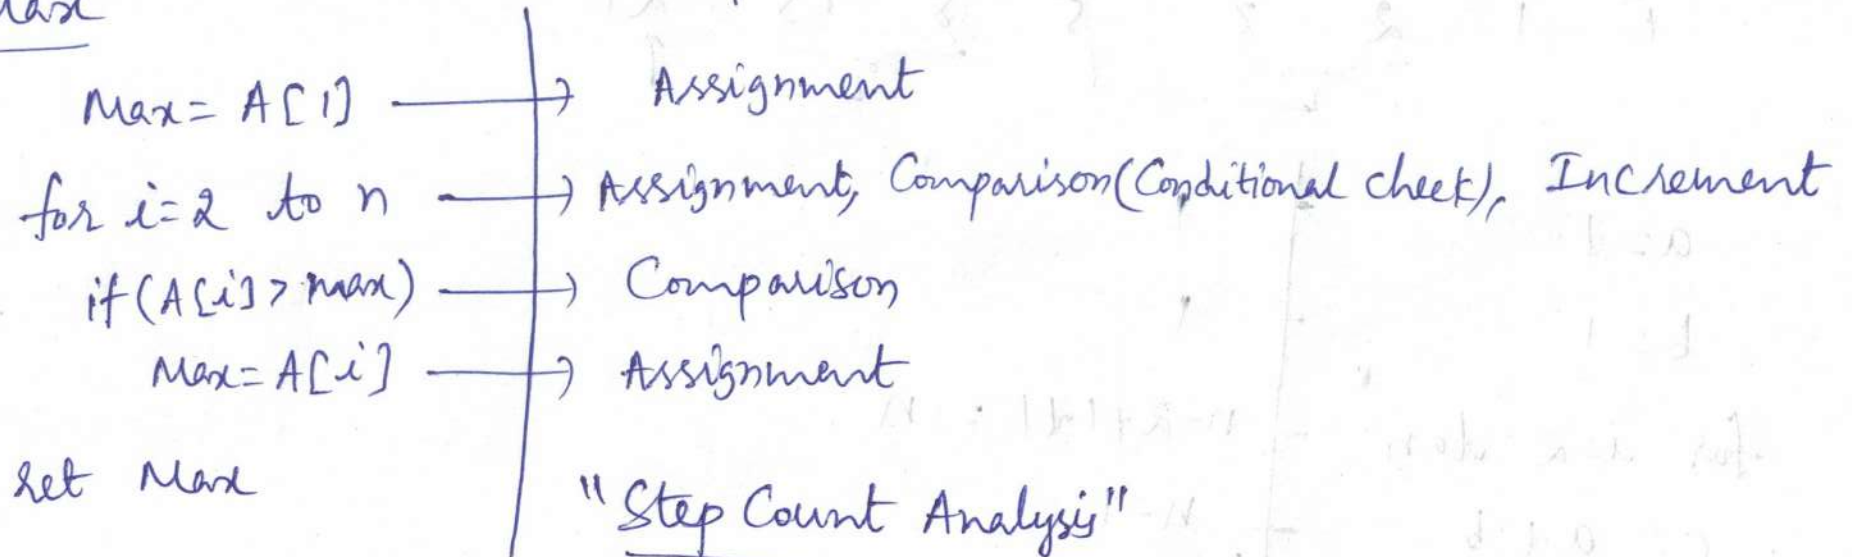 Max = A[1] → Assignment
for i=2 to n → Assignment, Comparison (Conditional check), Increment
if (A[i] > max) → Comparison
Max = A[i] → Assignment
ret Max
"Step Count Analysis"